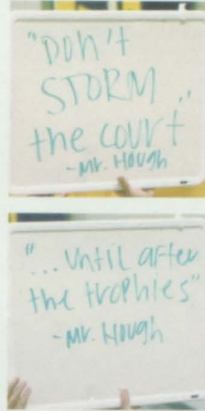 "DON't
STORM
the court"
-Mr. Hough
"... until after
the trophies"
-Mr. Hough